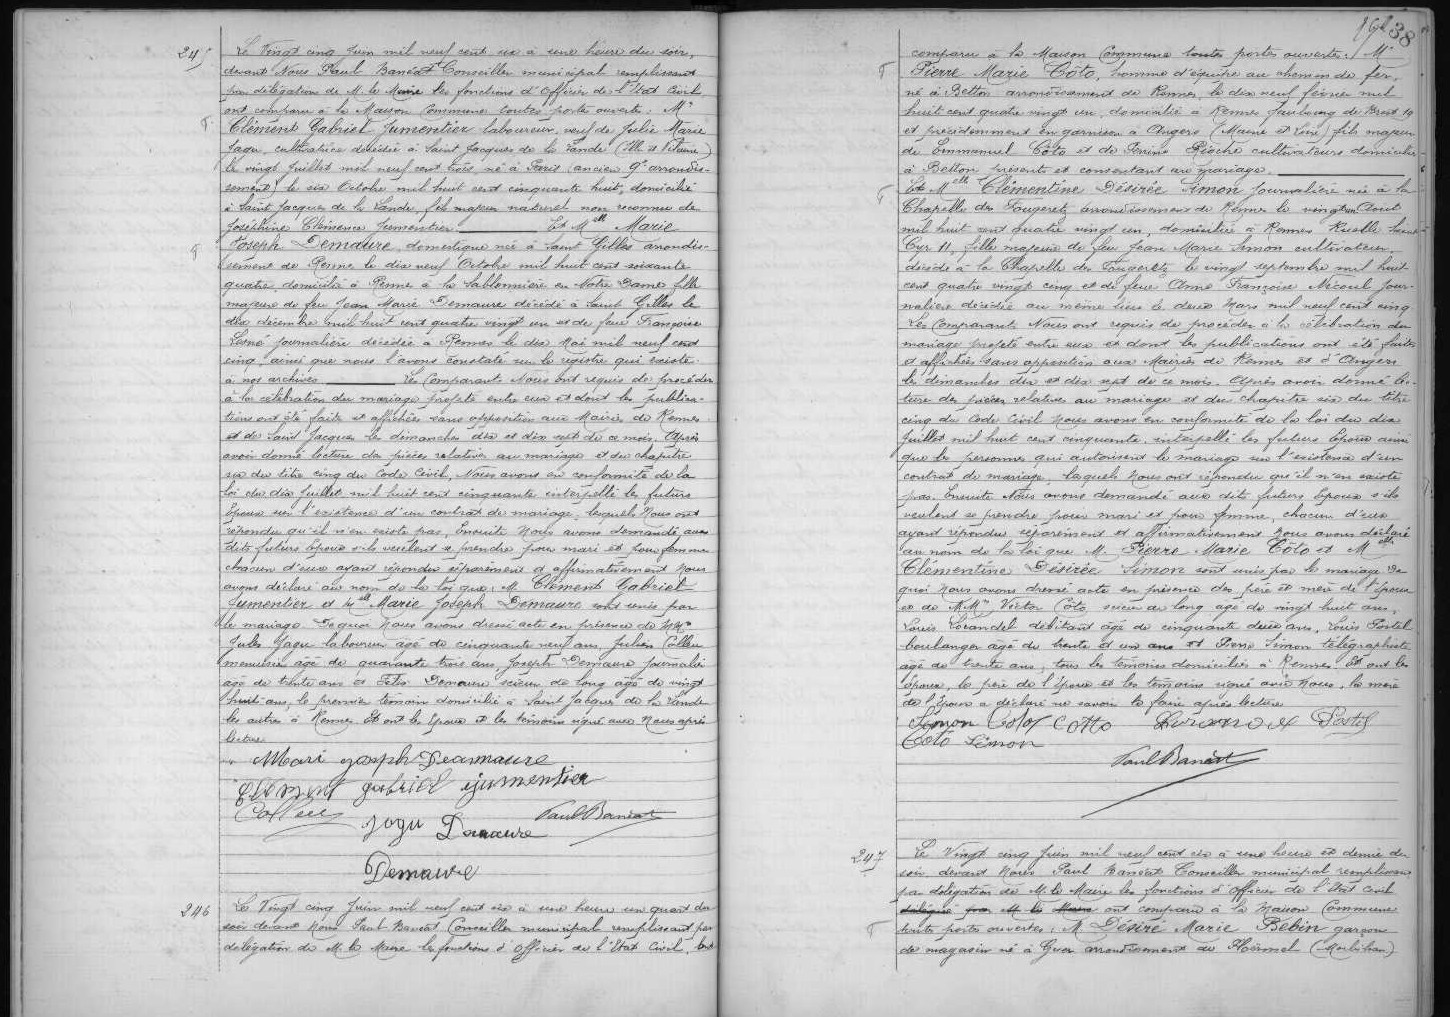 245
Le Vingt cinq Juin mil neuf cent six à une heure du soir,
devant Nous Paul Banéat Conseiller municipal remplissant
par délégation de M. le Maire les fonctions d'Officier de l'Etat Civil
ont comparu à la Maison Commune toutes portes ouvertes. Mr
Clément Gabriel Jumentier laboureur, veuf de Julie Marie
Jagu, cultivatrice décédée à Saint Jacques de la Lande (Ille et Vilaine)
le vingt Juillet mil neuf cent trois né à Paris (ancien 9e arrondis-
sement) le six Octobre mil huit cent cinquante huit, domicilié
à Saint Jacques de la Lande, fils majeur naturel non reconnu de
Joséphine Clémence Jumentier Et Melle Marie
Joseph Demaure, domestique née à Saint Gilles arrondis-
sement de Rennes le dix neuf Octobre mil huit cent soixante
quatre, domiciliée à Rennes à la Sablonnière en Notre Dame fille
majeure de feu Jean Marie Demaure décédé à Saint Gilles le
dix décembre mil huit cent quatre vingt un et de feue Françoise
journalière décédée à Rennes le dix Mai mil neuf cent
cinq, ainsi que nous l'avons constaté sur le registre qui existe
à nos archives Les Comparants Nous ont requis de procéder
à la célébration du mariage projeté entre eux et dont les publica-
tions ont été faites et affichées sans opposition aux Mairies de Rennes
et de Saint Jacques les dimanches dix et dix sept de ce mois. Après
avoir donné lecture des pièces relatives au mariage et du chapitre
six du titre cinq du Code Civil, Nous avons en conformité de la
loi du dix Juillet mil huit cent cinquante interpellé les futurs
Epoux sur l'existence d'un contrat de mariage, lesquels Nous ont
répondu qu'il n'en existe pas, Ensuite Nous avons demandé aux
dits futurs Epoux s'ils veulent se prendre pour mari et pour femme
chacun d'eux ayant répondu séparément et affirmativement Nous
avons déclaré au nom de la loi que M. Clément Gabriel
Jumentier et Melle Marie Joseph Demaure sont unis par
le mariage. De quoi Nous avons dressé acte en présence de MMrs
Jules Jagu laboureur âgé de cinquante neuf ans, Julien Colleu
menuisier âgé de quarante trois ans, Joseph Demaure journalier
âgé de trente ans et Félix Demaure scieur de long âgé de vingt
huit ans, le premier témoin domicilié à Saint Jacques de la Lande
les autres à Rennes. Et ont les époux et les témoins signé avec Nous après
lecture
Mari joseph Deamaure
Clement gabriel jumentier
Colleu Jagu Demaure Paul Banéat
Demaure
246
Le Vingt cinq Juin mil neuf cent six à une heure un quart du
soir devant Nous Paul Banéat Conseiller municipal remplissant par
délégation de M. le Maire les fonctions d'Officier de l'Etat Civil, ont
38
comparu à la Maison Commune toutes portes ouvertes. Mr
Pierre Marie Coto, homme d'équipe au chemin de fer,
né à Betton arrondissement de Rennes, le dix neuf février mil
huit cent quatre vingt un, domicilié à Rennes faubourg de Brest 19
et précédemment en garnison à Angers (Maine et Loire) fils majeur
de Emmanuel Coto et de Perrine Rioche cultivateurs domiciliés
à Betton présents et consentant au mariage.
Et Melle Clémentine Désirée Simon journalière née à la
Chapelle des Fougeretz arrondissement de Rennes le vingt un Aout
mil huit cent quatre vingt un, domiciliée à Rennes Ruelle Saint
Cyr 11, fille majeure de feu Jean Marie Simon cultivateur,
décédé à la Chapelle des Fougeretz le vingt septembre mil huit
cent quatre vingt cinq et de feue Anne Françoise Nicoul jour-
nalière décédée au même lieu le deux Mars mil neuf cent cinq
Les Comparants Nous ont requis de procéder à la célébration du
mariage projeté entre eux et dont les publications ont été faites
et affichées sans opposition aux Mairies de Rennes et d'Angers
les dimanches dix et dix sept de ce mois. Après avoir donné lec-
ture des pièces relatives au mariage et du chapitre six du titre
cinq du Code Civil Nous avons en conformité de la loi du dix
Juillet mil huit cent cinquante, interpellé les futurs Epoux ainsi
que les personnes qui autorisent le mariage sur l'existence d'un
contrat de mariage, lesquels Nous ont répondu qu'il n'en existe
pas. Ensuite Nous avons demandé aux dits futurs Epoux s'ils
veulent se prendre pour mari et pour femme, chacun d'eux
ayant répondu séparément et affirmativement Nous avons déclaré
au nom de la loi que M. Pierre Marie Coto et Melle
Clémentine Désirée Simon sont unis par le mariage De
quoi Nous avons dressé acte en présence des père et mère de l'époux
et de MMrs Victor Coto, scieur de long âgé de vingt huit ans,
Louis débitant âgé de cinquante deux ans, Louis Postel
boulanger âgé de trente et un ans et Pierre Simon télégraphiste
âgé de trente ans, tous les témoins domiciliés à Rennes. Et ont les
époux, le père de l'époux et les témoins signé avec Nous, la mère
de l'époux a déclaré ne savoir le faire après lecture
Simon Coto Cotto Postel
Coto Simon
Paul Banéat
247
Le Vingt cinq Juin mil neuf cent six à une heure et demie du
soir devant Nous Paul Banéat Conseiller municipal remplissant
par délégation de M. le Maire les fonctions d'Officier de l'Etat Civil
délégué par M. le Maire ont comparu à la Maison Commune
toutes portes ouvertes: M. Désiré Marie Bébin garçon
de magasin né à Guer arrondissement de Ploermel (Morbihan)